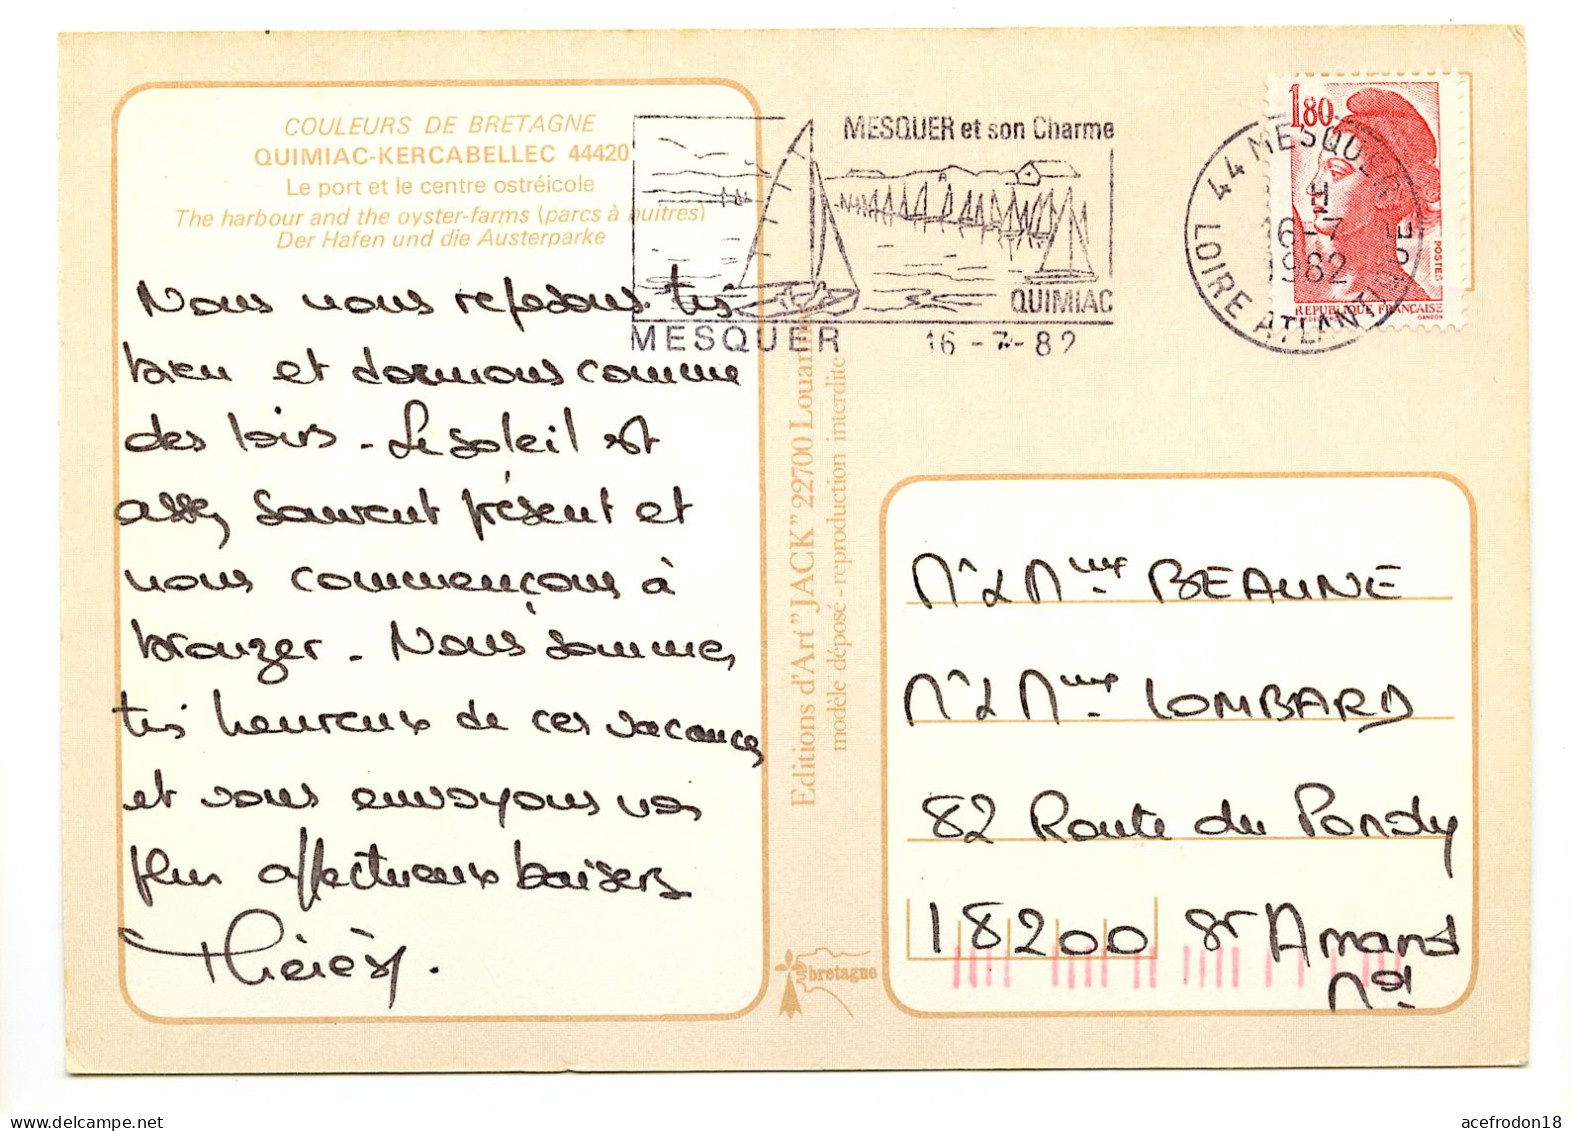 COULEURS DE BRETAGNE
QUIMIAC-KERCABELLEC 44420
Le port et le centre ostréicole
The harbour and the oyster-farms (parcs à huitres)
Der Hafen und die Austerparke
Nous nous reposons très
bien et dormons comme
des loirs - Le soleil est
assez souvent présent et
nous commençons à
bronzer - Nous sommes
très heureux de ces vacances
et vous envoyons nos
plus affectueux baisers
Thérèse.
MESQUER et son Charme
QUIMIAC
MESQUER 16-7-82
44 MESQUER
16-7
1982
LOIRE ATLANTIQUE
1,80
POSTES
REPUBLIQUE FRANÇAISE
GANDON
Editions d'Art "JACK" 22700 Louannec
modèle déposé - reproduction interdite
bretagne
Mr & Mme BEAUNE
Mr & Mme LOMBARD
82 Route du Pondy
18200 St Amand
Md
acefrodon18